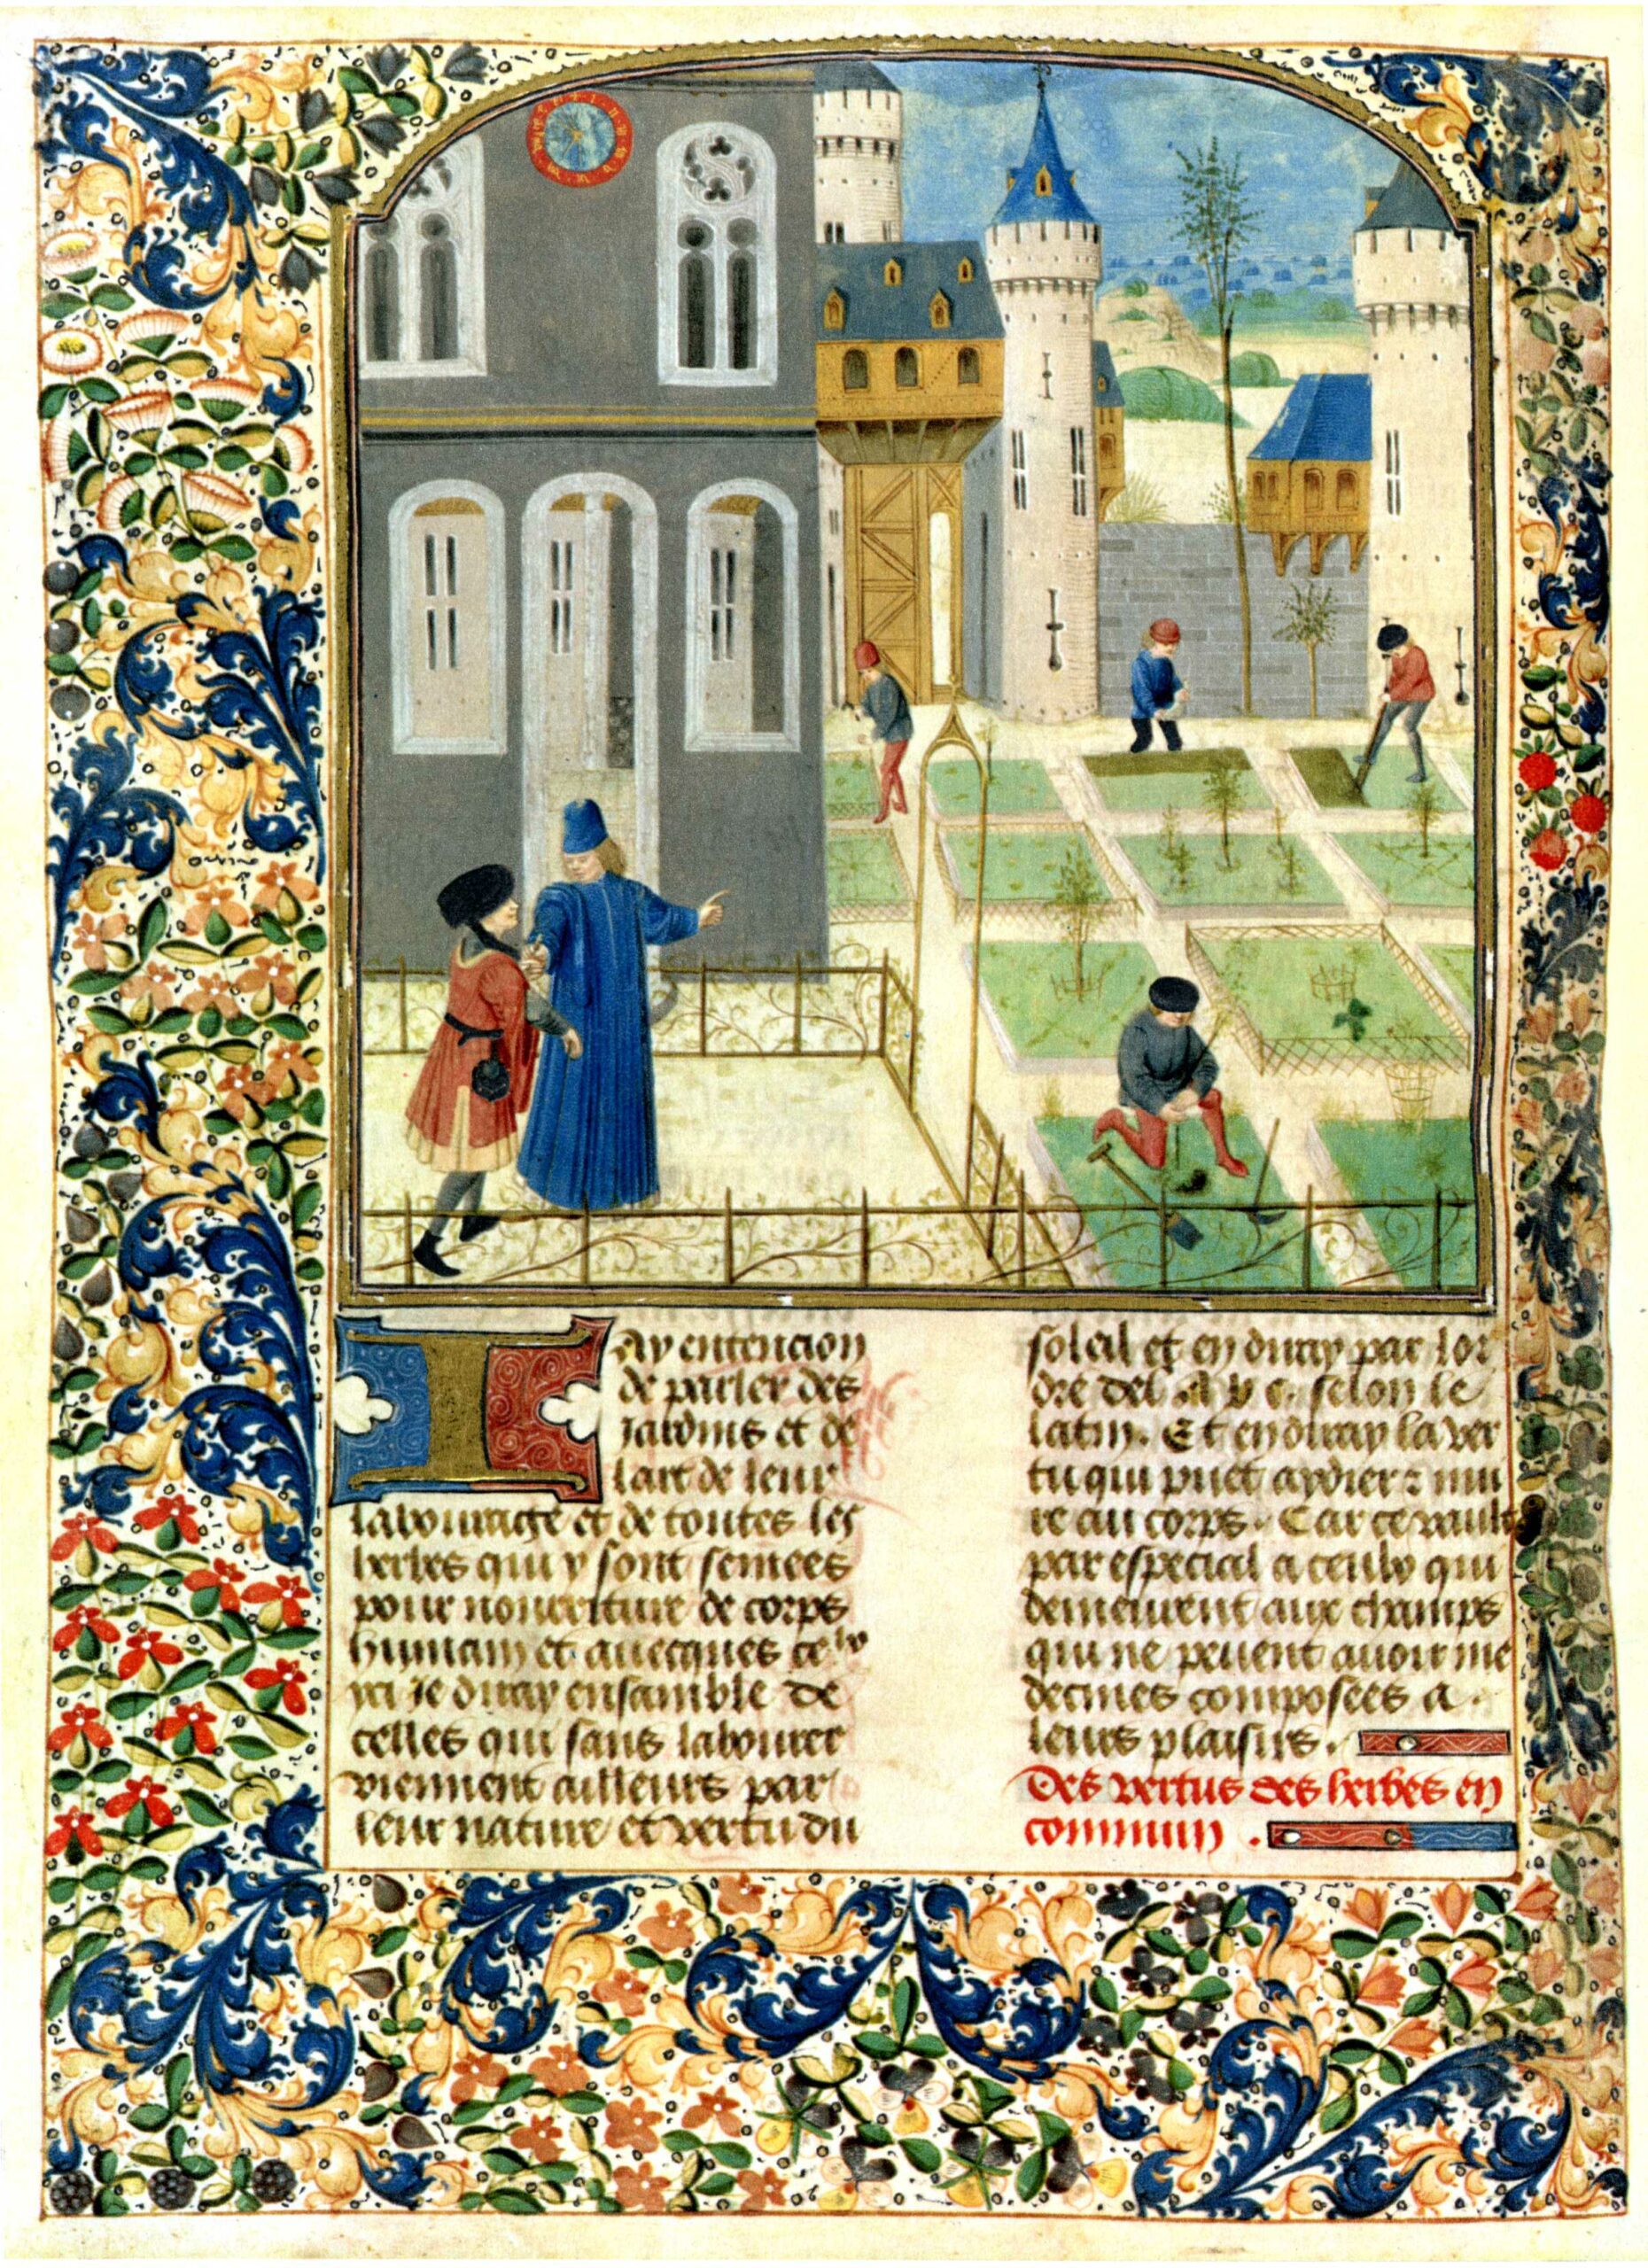 Ay entencion
de parler des
Jardins et de
lart de leur
labourage et de toutes les
herbes qui y sont semees
pour nourriture de corps
humain et auecques ce
Je diray ensamble de
celles qui sans labourer
viennent ailleurs par
leur nature et vertu du
soleil et en diray par lor
dre del A b c. selon le
latin. Et en diray la ver
tu qui puet aydier: nui
re au corps. Car ce vault
par especial a ceulx qui
demeurent aux champs
qui ne peuent auoir me
decines composees a
leurs plaisirs.
Des vertus des herbes en
commun.